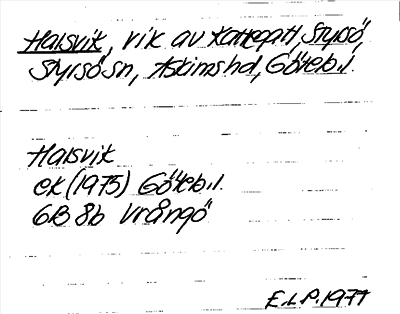 Halsvik, vik av Kattegatt, Styrsö,
Styrsö sn, Askims hd, Göteb.l.
Halsvik
ek (1975) Göteb.l.
6B 8b Vrångö
E.L.P. 1977